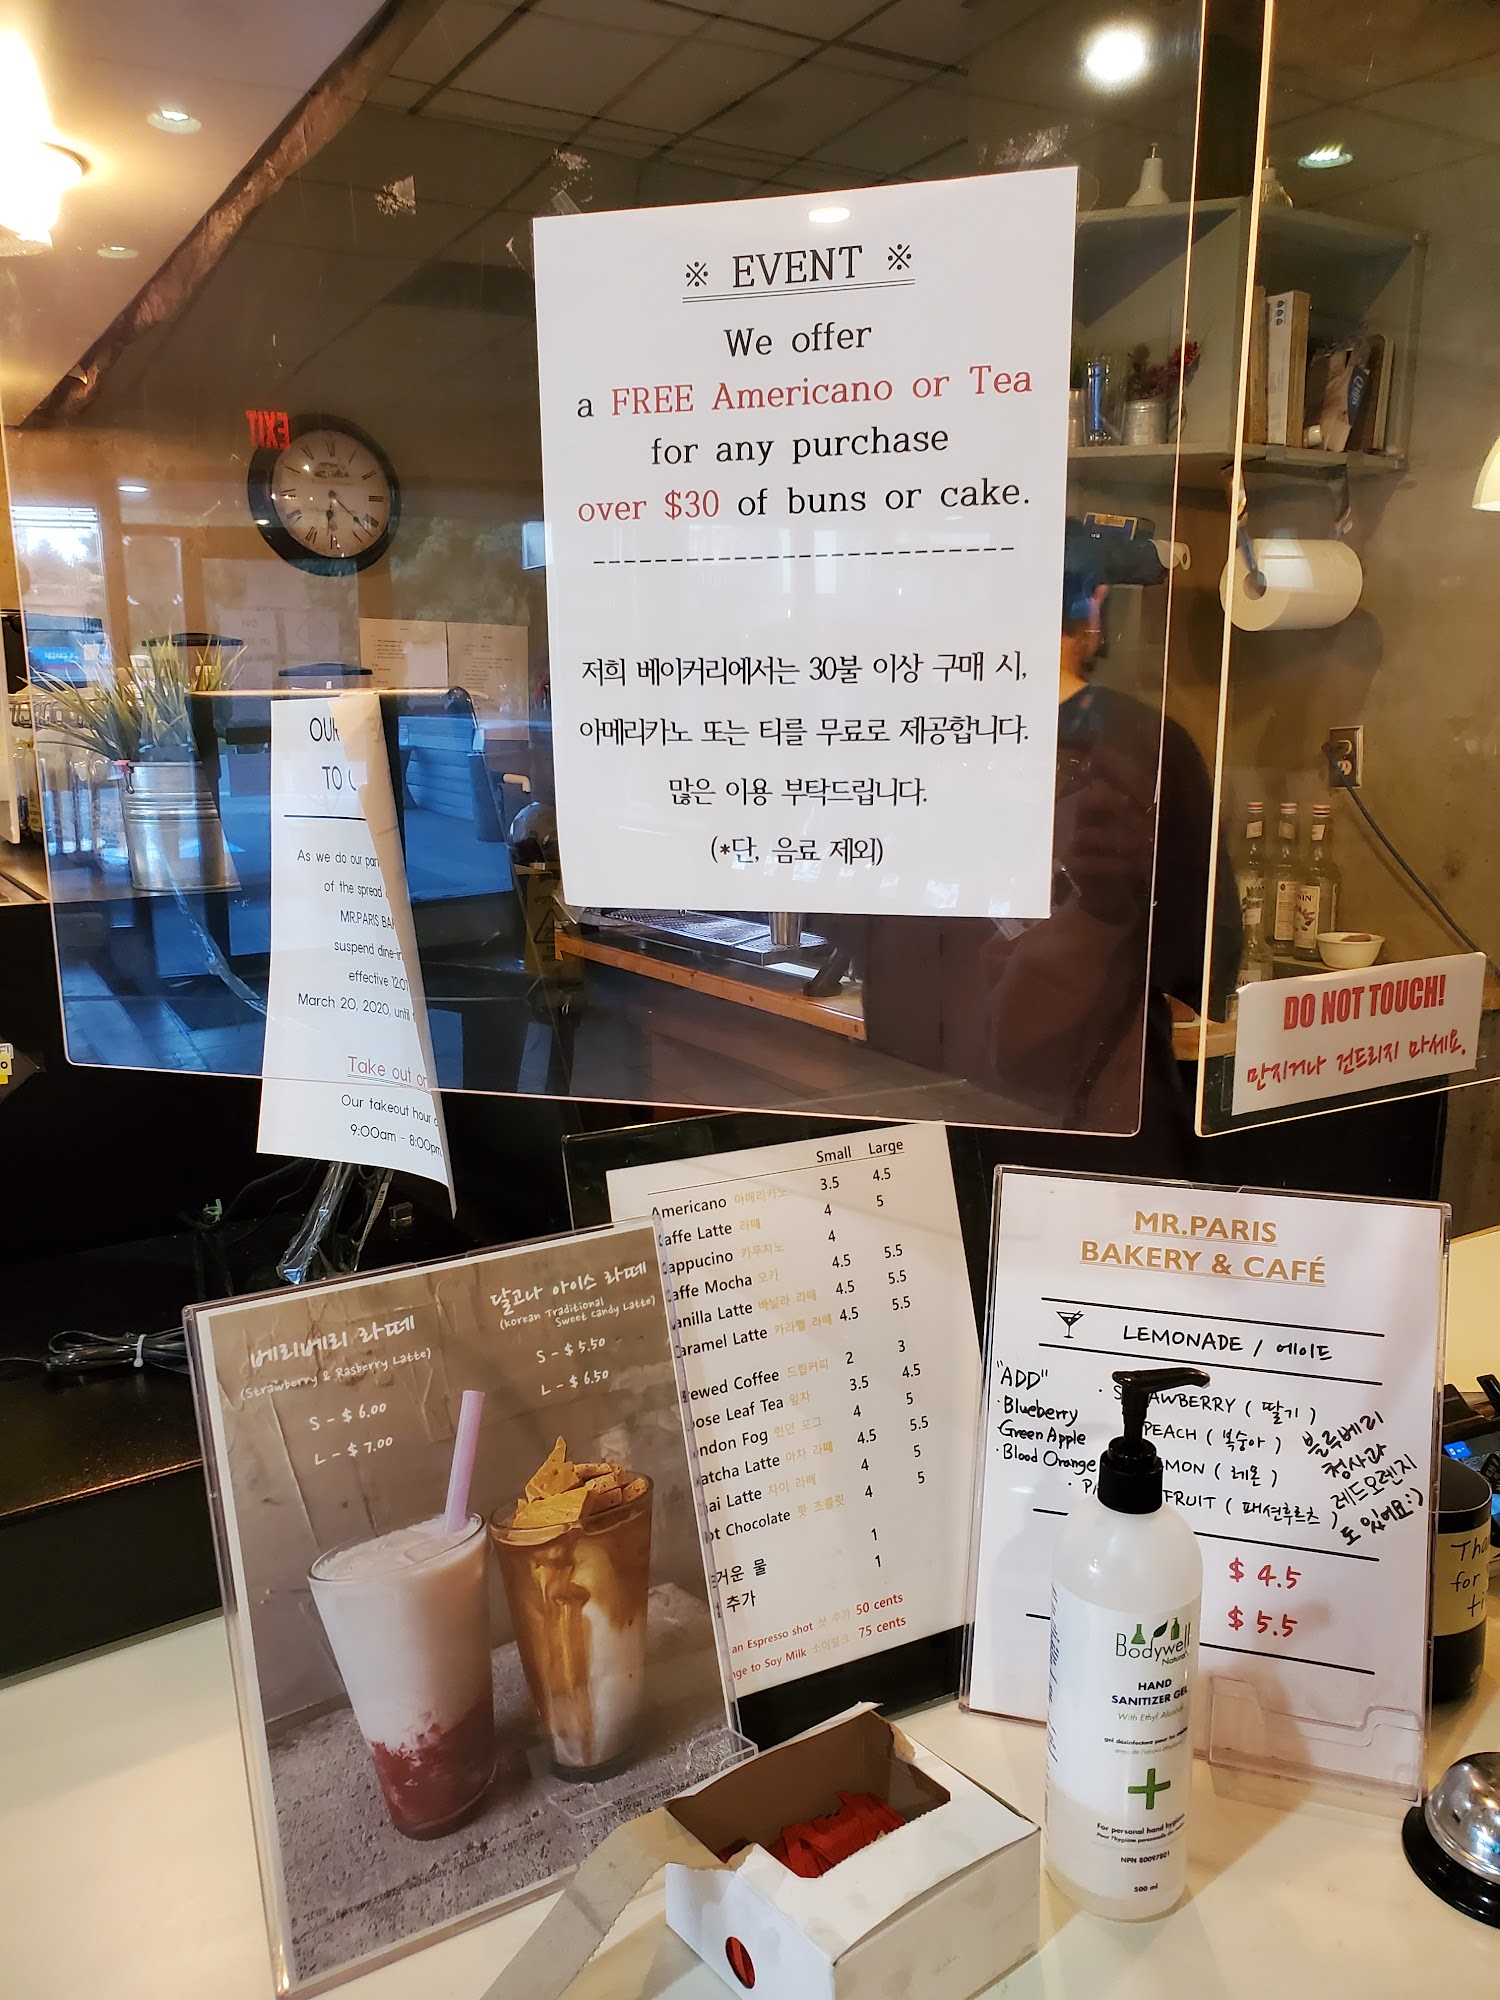 ※ EVENT ※
We offer
a FREE Americano or Tea
for any purchase
over $30 of buns or cake.
저희 베이커리에서는 30불 이상 구매 시,
아메리카노 또는 티를 무료로 제공합니다.
많은 이용 부탁드립니다.
(*단, 음료 제외)
EXIT
OUR
TO
As we do our
of the spread
MR.PARIS
suspend
effective
March 20, 2020,
Take out
Our takeout hour
9:00am - 8:00pm
DO NOT TOUCH!
만지거나 건드리지 마세요.
Small Large
Americano 아메리카노 3.5 4.5
affe Latte 라떼 4 5
appucino 카푸치노 4
affe Mocha 모카 4.5 5.5
anilla Latte 바닐라 라떼 4.5 5.5
aramel Latte 카라멜 라떼 4.5 5.5
rewed Coffee 드립커피 2 3
oose Leaf Tea 잎차 3.5 4.5
ondon Fog 런던 포그 4 5
atcha Latte 마차 라떼 4.5 5.5
hai Latte 차이 라떼 4 5
ot Chocolate 핫 초콜릿 4 5
거운 물 1
추가 1
an Espresso shot 샷 추가 50 cents
nge to Soy Milk 소이밀크 75 cents
베리베리 라떼
(Strawberry & Rasberry Latte)
S - $ 6.00
L - $ 7.00
달고나 아이스 라떼
(Korean Traditional
Sweet candy Latte)
S - $ 5.50
L - $ 6.50
MR.PARIS
BAKERY & CAFÉ
LEMONADE / 에이드
"ADD"
· Blueberry
· Green Apple
· Blood Orange
· S AWBERRY ( 딸기 )
PEACH ( 복숭아 )
MON ( 레몬 )
· P FRUIT ( 패션후르츠 )
블루베리
청사과
레드오렌지
도 있어요:)
$ 4.5
$ 5.5
Bodywell
Natural
HAND
SANITIZER GEL
With Ethyl Alcohol
For personal hand hygiene
NPN 80097801
500 ml
for